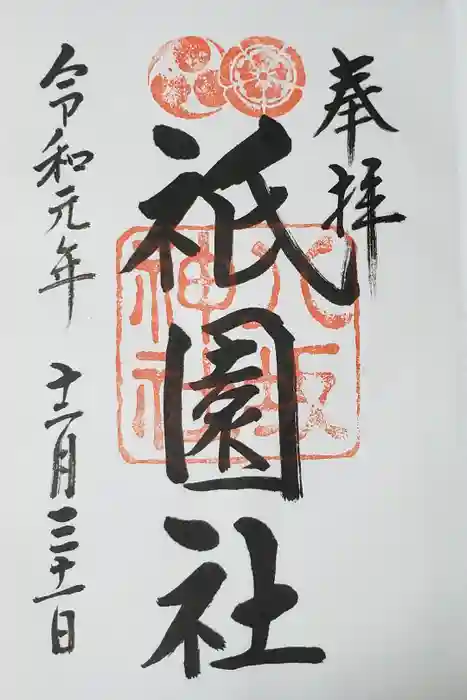 奉拝
祇園社
八坂神社
令和元年 十二月三十一日